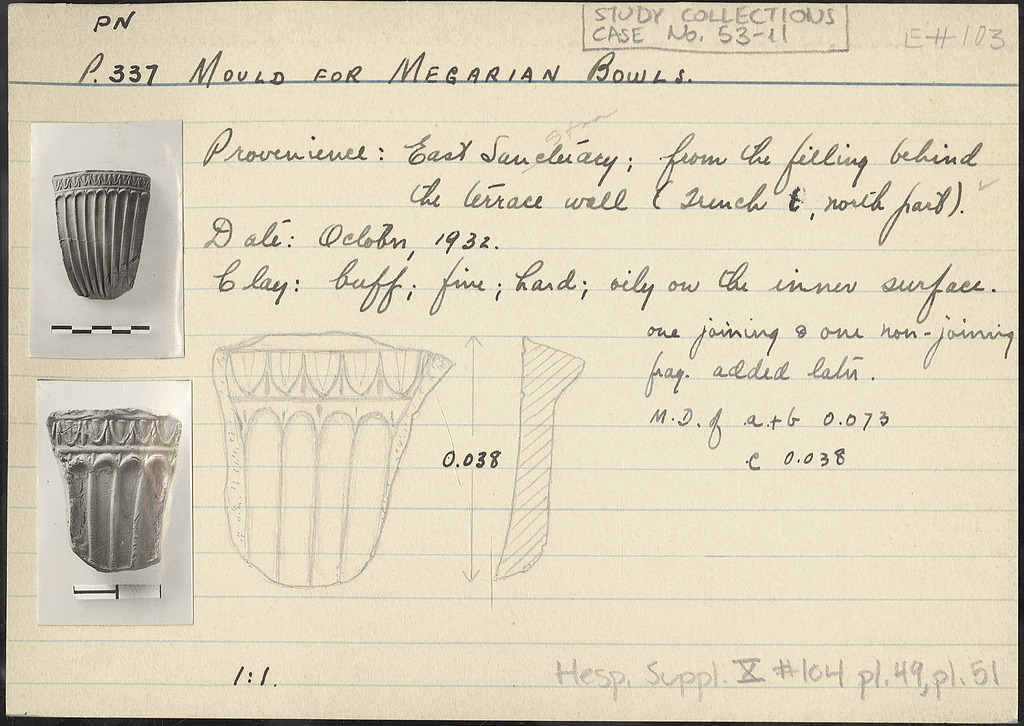 PN
STUDY COLLECTIONS
CASE No. 53-11
E#103
P. 337 MOULD FOR MEGARIAN BOWLS.
Provenience: East Sanctuary; from the filling behind
the terrace wall (Trench t, north part).
Date: October, 1932.
Clay: buff; fine; hard; oily on the inner surface.
one joining & one non-joining
frag. added later.
M.D. of a+b 0.073
c 0.038
0.038
1:1.
Hesp. Suppl. X #104 pl. 49, pl. 51